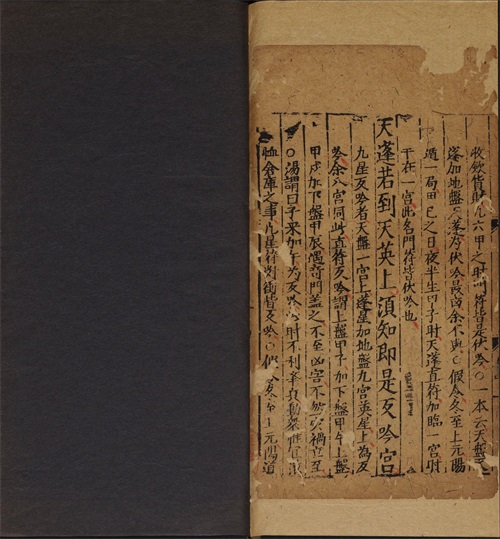 收斂貨財凡六甲之時門符皆是伏吟○一本云天盤天
蓬加地盤天蓬為伏吟最凶余不與○假令冬至上元陽
遁一局甲己之日夜半生甲子时天蓬直符加臨一宮时
干在一宮出名門符皆伏吟也
天蓬若到天英上須知即是反吟宮
九星反吟者天盤一宮上蓬星加地盤九宮英星上為反
吟余八宮同此直符反吟謂上盤甲子加下盤甲午上盤
甲戌加下盤甲辰遇奇門蓋之不至凶害不然災禍立至
○湯謂曰子來加午為反吟
倉庫之事凡星符對衝皆反吟○假令冬至上元陽遁